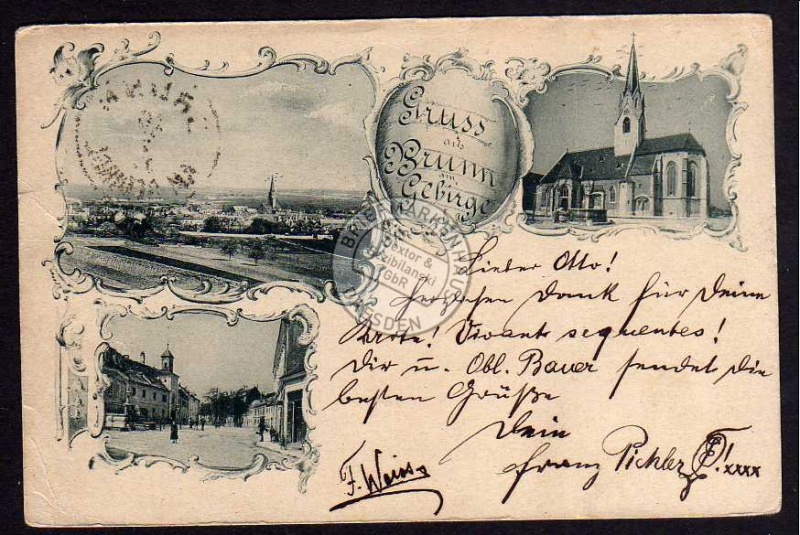 Gruss
aus
Brunn
am
Gebirge
BRIEFMARKENHAUS
Sextor &
Zeibilanski
GbR
DRESDEN
Lieber Otto!
Herzlichen Dank für Deine
Karte! Vivant sequentes!
Dir u. Obl. Bauer sendet die
besten Grüße
Dein
Franz Pichler
F. Weiss